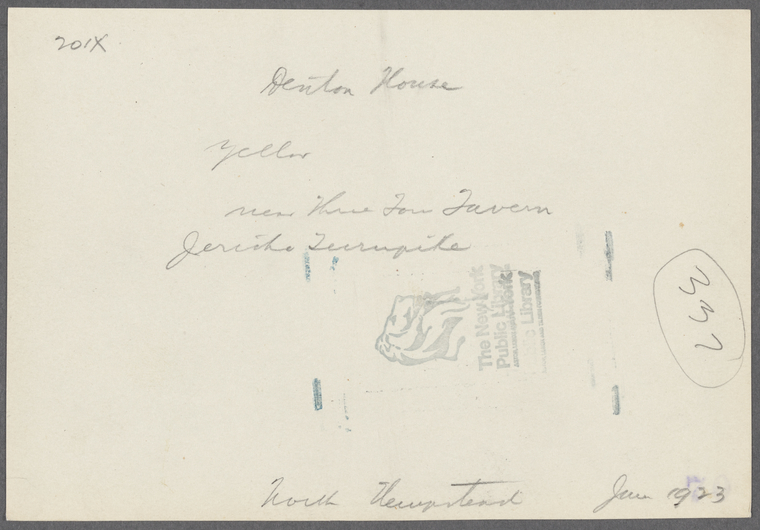 201X
Denton House
Yellow
near Three Tun Tavern
Jericho Turnpike
The New York
Public Library
Public Library
North Hempstead
1923